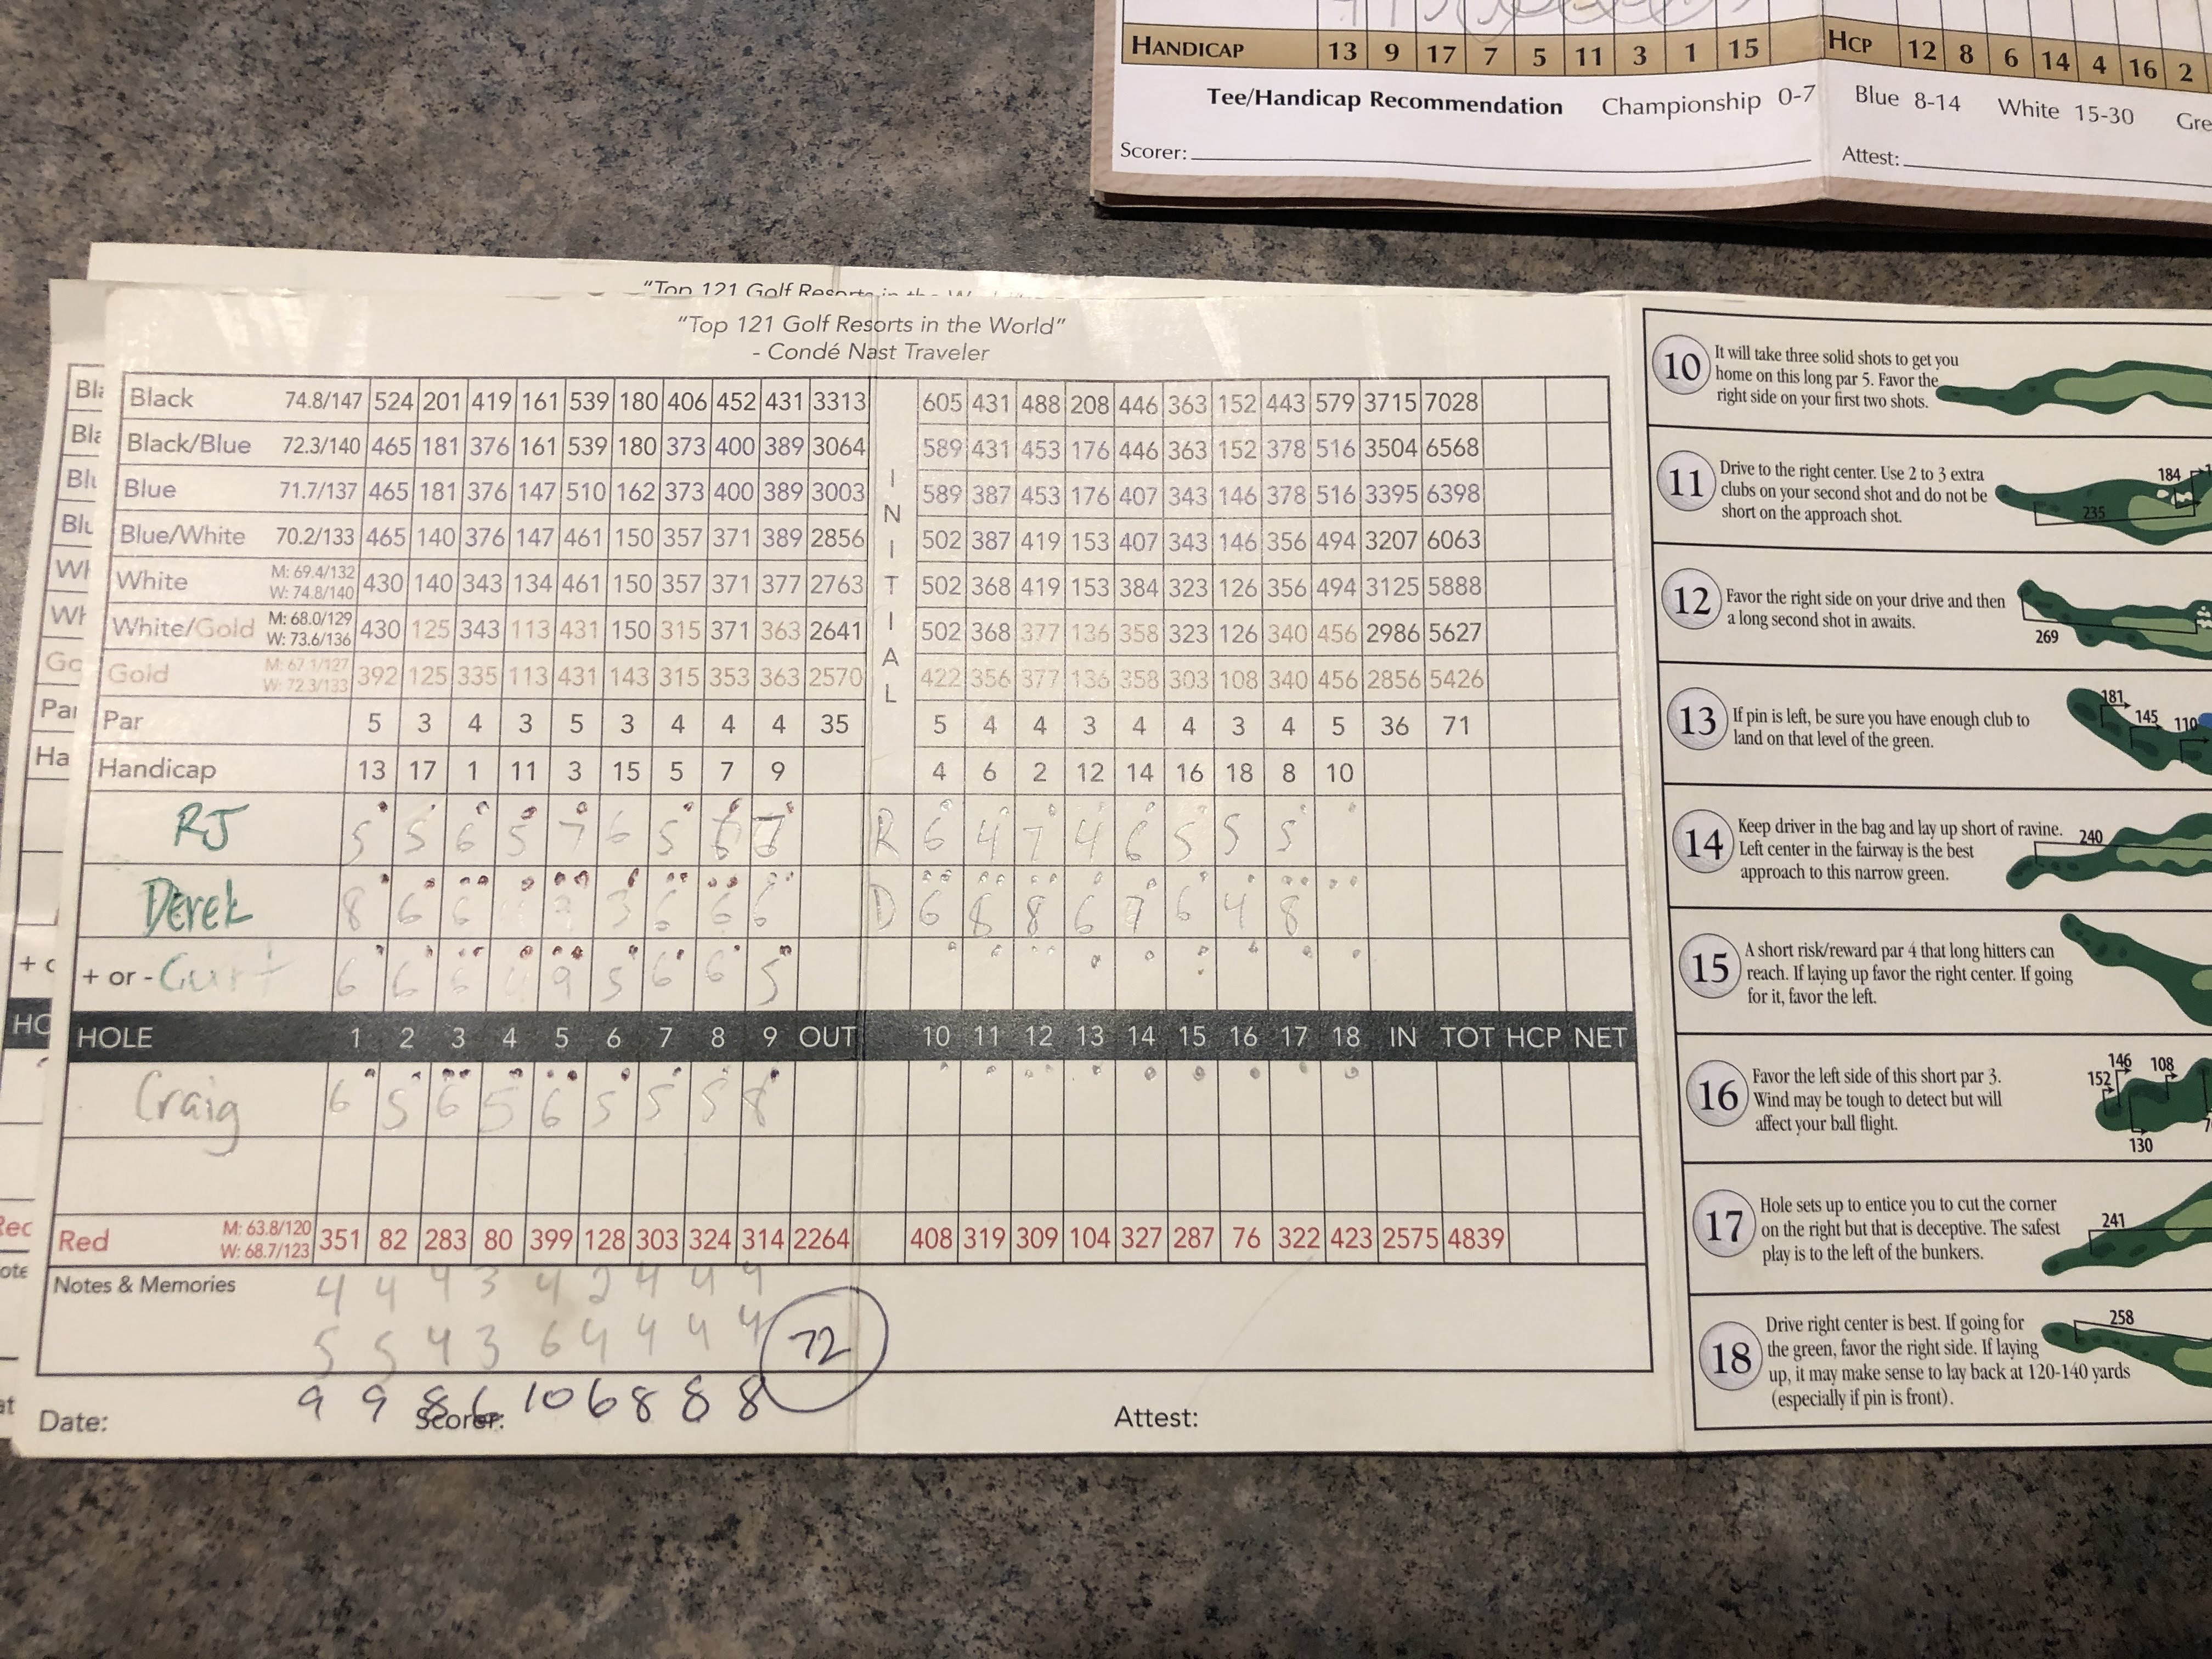 HANDICAP 13 9 17 7 5 11 3 1 15 HCP 12 8 6 14 4 16 2
Tee/Handicap Recommendation Championship 0-7 Blue 8-14 White 15-30 Gre
Scorer: Attest:
"Top 121 Golf Resorts in the W
"Top 121 Golf Resorts in the World"
- Condé Nast Traveler
Black 74.8/147 524 201 419 161 539 180 406 452 431 3313 605 431 488 208 446 363 152 443 579 3715 7028
Black/Blue 72.3/140 465 181 376 161 539 180 373 400 389 3064 589 431 453 176 446 363 152 378 516 3504 6568
Blue 71.7/137 465 181 376 147 510 162 373 400 389 3003 589 387 453 176 407 343 146 378 516 3395 6398
Blue/White 70.2/133 465 140 376 147 461 150 357 371 389 2856 502 387 419 153 407 343 146 356 494 3207 6063
White M: 69.4/132 W: 74.8/140 430 140 343 134 461 150 357 371 377 2763 502 368 419 153 384 323 126 356 494 3125 5888
White/Gold M: 68.0/129 W: 73.6/136 430 125 343 113 431 150 315 371 363 2641 502 368 377 136 358 323 126 340 456 2986 5627
Gold M: 67.1/127 W: 72.3/133 392 125 335 113 431 143 315 353 363 2570 422 356 377 136 358 303 108 340 456 2856 5426
INITIAL
Par 5 3 4 3 5 3 4 4 4 35 5 4 4 3 4 4 3 4 5 36 71
Handicap 13 17 1 11 3 15 5 7 9 4 6 2 12 14 16 18 8 10
RJ 5 5 6 5 7 6 5 6 7 R 6 4 7 4 6 5 5 5
Derek 8 6 6 3 6 6 6 D 6 8 8 6 7 6 4 8
+ or - Curt 6 6 6 4 9 5 6 6 5
HOLE 1 2 3 4 5 6 7 8 9 OUT 10 11 12 13 14 15 16 17 18 IN TOT HCP NET
Craig 6 5 6 5 6 5 5 5 8
Red M: 63.8/120 W: 68.7/123 351 82 283 80 399 128 303 324 314 2264 408 319 309 104 327 287 76 322 423 2575 4839
Notes & Memories 4 4 4 3 4 2 4 4 4
5 5 4 3 6 4 4 4 4 72
9 9 8 6 10 6 8 8 8
Date: Scorer: Attest:
10 It will take three solid shots to get you
home on this long par 5. Favor the
right side on your first two shots.
11 Drive to the right center. Use 2 to 3 extra
clubs on your second shot and do not be
short on the approach shot.
184
235
12 Favor the right side on your drive and then
a long second shot in awaits.
269
13 If pin is left, be sure you have enough club to
land on that level of the green.
181
145
110
14 Keep driver in the bag and lay up short of ravine.
Left center in the fairway is the best
approach to this narrow green.
240
15 A short risk/reward par 4 that long hitters can
reach. If laying up favor the right center. If going
for it, favor the left.
16 Favor the left side of this short par 3.
Wind may be tough to detect but will
affect your ball flight.
146
108
152
130
17 Hole sets up to entice you to cut the corner
on the right but that is deceptive. The safest
play is to the left of the bunkers.
241
18 Drive right center is best. If going for
the green, favor the right side. If laying
up, it may make sense to lay back at 120-140 yards
(especially if pin is front).
258